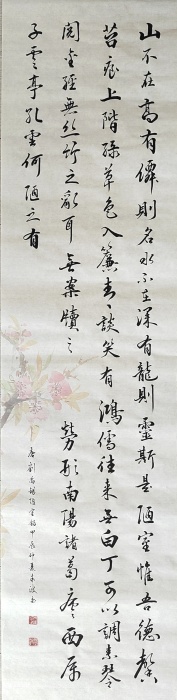 山不在高有僊則名水不在深有龍則靈斯是陋室惟吾德馨
苔痕上階緑草色入簾青談笑有鴻儒往来無白丁可以調素琴
閱金經無丝竹之亂耳無案牘之勞形南陽諸葛廬西蜀
子雲亭孔雲何陋之有
唐劉禹錫陋室銘甲辰仲夏